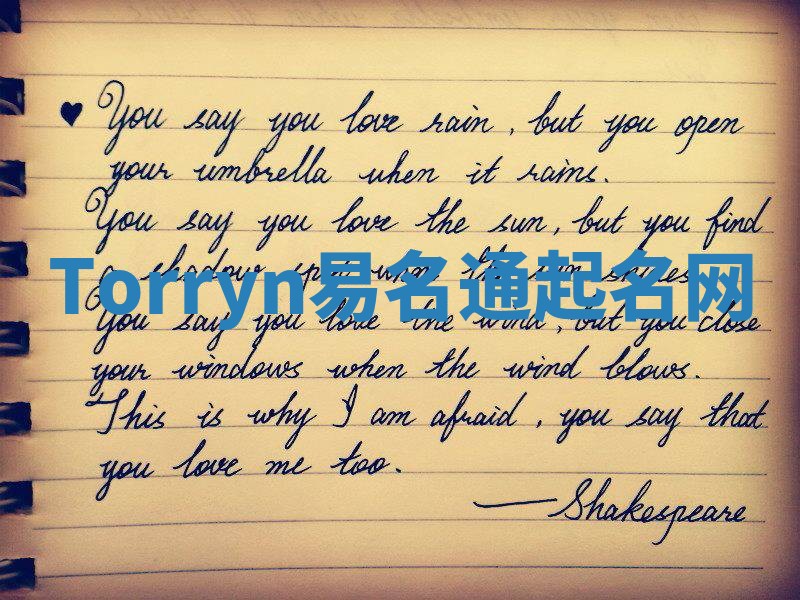 ♥ You say you love rain, but you open
your umbrella when it rains.
You say you love the sun, but you find
a shadow spot when the sun shines.
Torryn易名通起名网
You say you love the wind, but you close
your windows when the wind blows.
This is why I am afraid, you say that
you love me too.
—Shakespeare